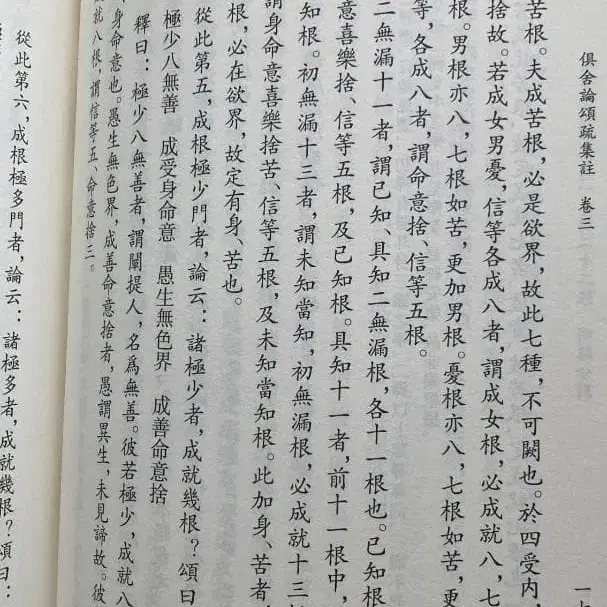 俱舍論頌疏集註 卷三
一七
苦根。夫成苦根，必是欲界，故此七種，不可闕也。於四受內
捨故。若成女男憂，信等各成八者，謂成女根，必成就八，七
根。男根亦八，七根如苦，更加男根。憂根亦八，七根如苦，更
等，各成八者，謂命意捨、信等五根。
二無漏十一者，謂已知、具知二無漏根，各十一根也。已知根
意喜樂捨、信等五根，及已知根。具知十一者，前十一根中，
知根。初無漏十三者，謂未知當知，初無漏根，必成就十三
謂身命意喜樂捨苦、信等五根，及未知當知根。此加身、苦者
根，必在欲界，故定有身、苦也。
從此第五，成根極少門者，論云：諸極少者，成就幾根？頌曰
極少八無善 成受身命意 愚生無色界 成善命意捨
釋曰：極少八無善者，謂闡提人，名爲無善。彼若極少，成就八
、身命意也。愚生無色界，成善命意捨者，愚謂異生，未見諦故。彼
就八根，謂信等五、命意捨三。
從此第六，成根極多門者，論云：諸極多者，成就幾根？頌曰：